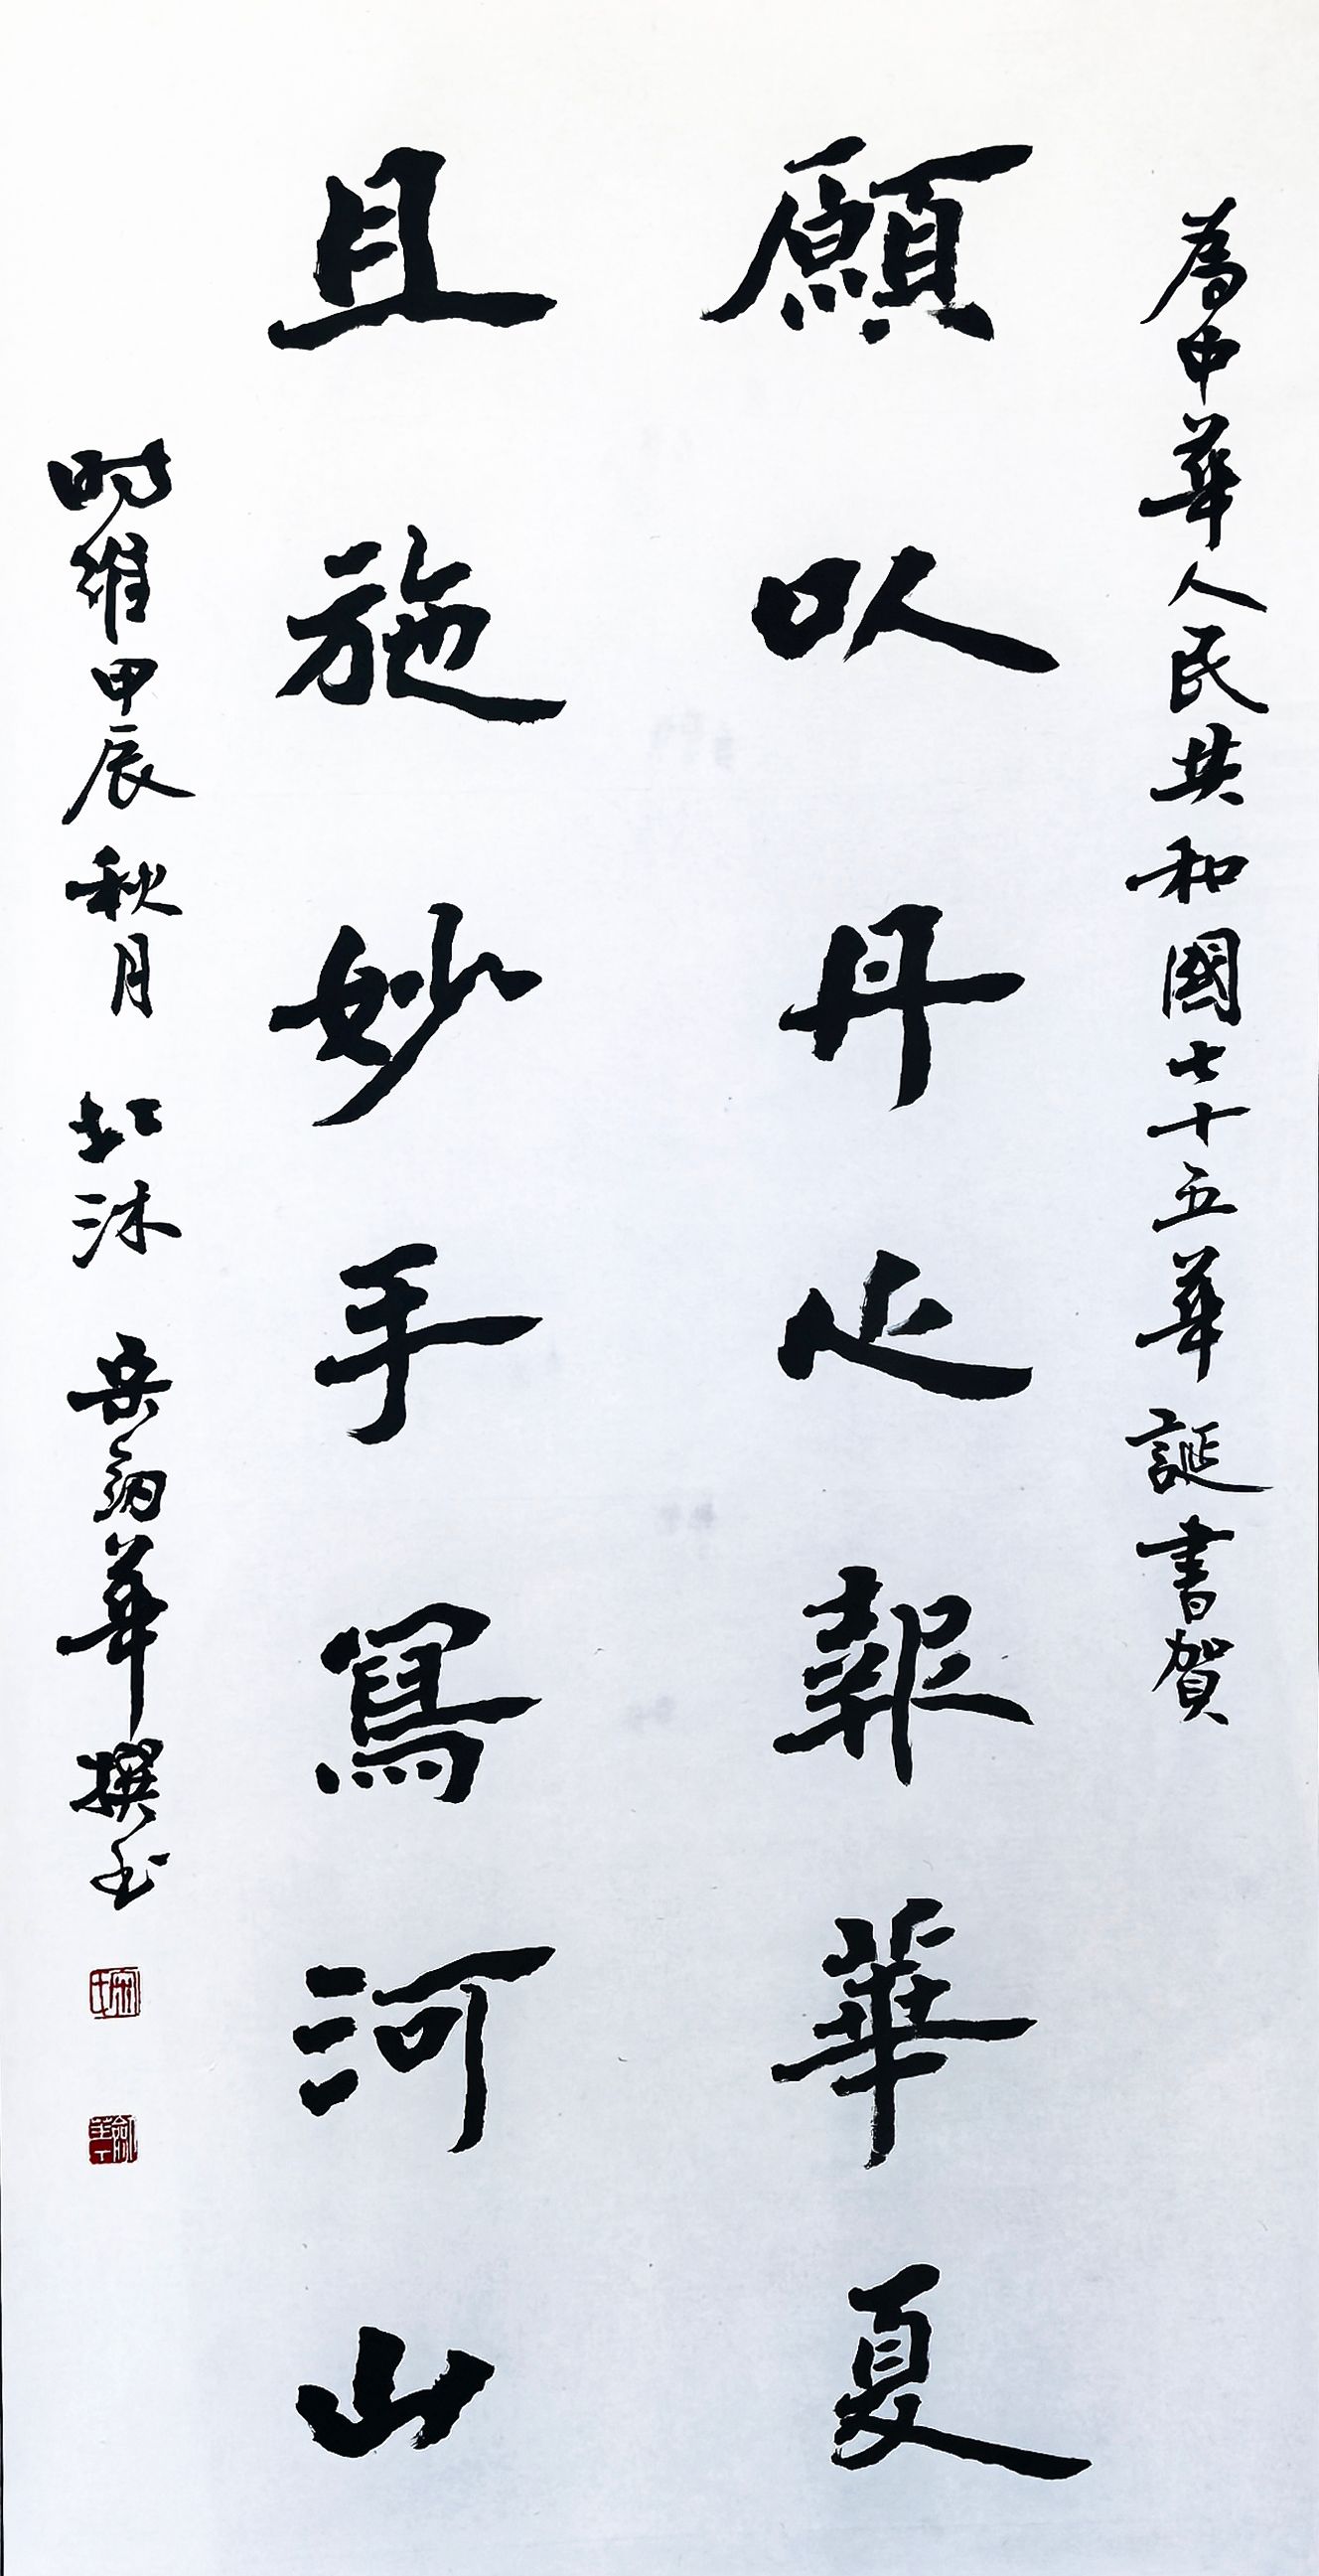 為中華人民共和國七十五華誕書賀
願以丹心報華夏
且施妙手寫河山
时維甲辰秋月 沐 華撰书